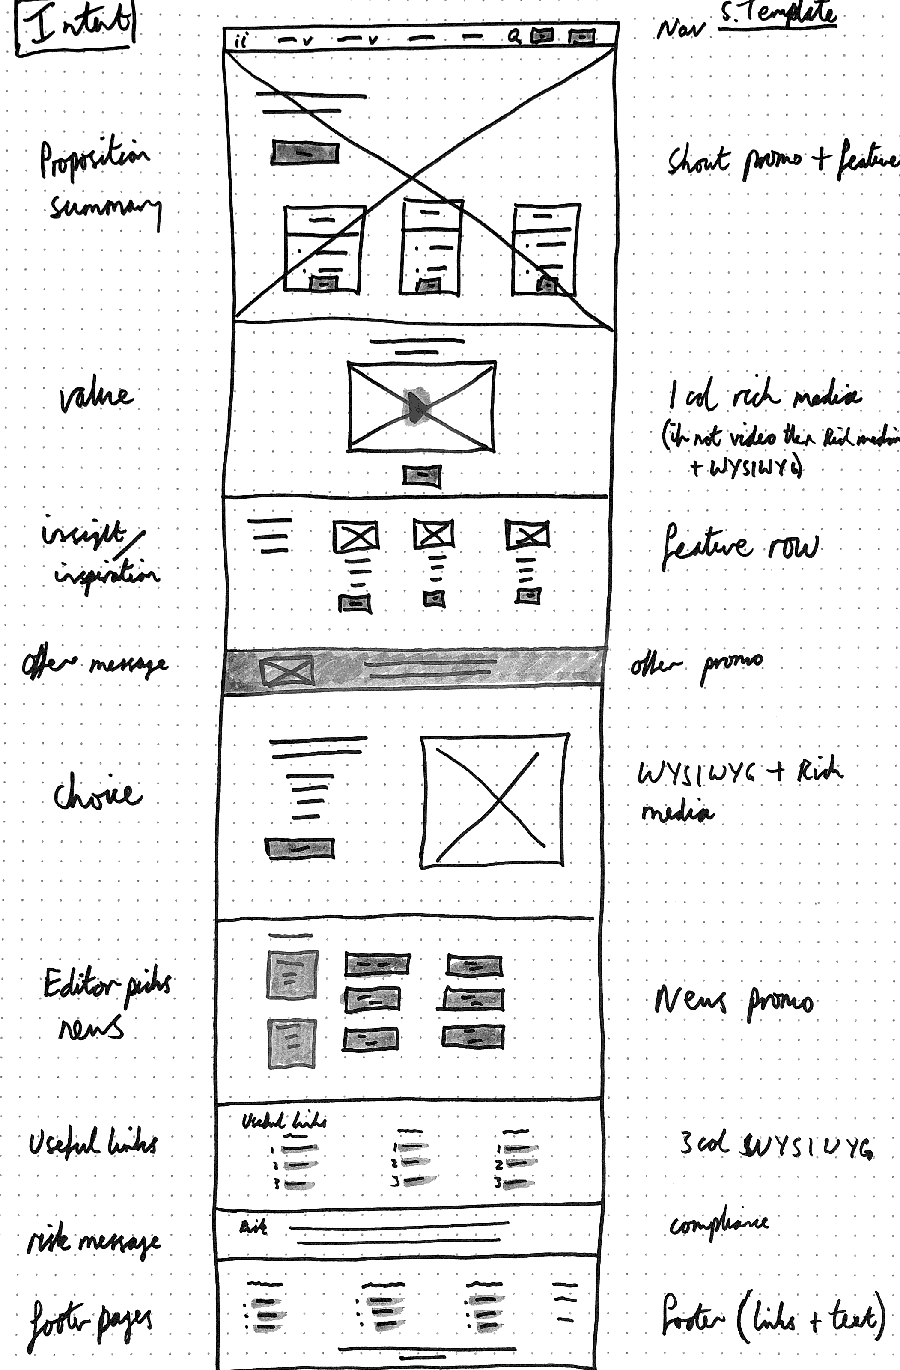 Intent
S. Template
ii
Q
Nav
Proposition
summary
Shout promo + feature
value
1 col rich media
(if not video then Rich media
+ WYSIWYG)
insight/
inspiration
feature row
offer message
offer promo
choice
WYSIWYG + Rich
media
Editor picks
news
News promo
Useful links
Useful links
1
2
3
1
2
3
1
2
3
3 col WYSIWYG
risk message
Risk
compliance
footer pages
footer (links + text)